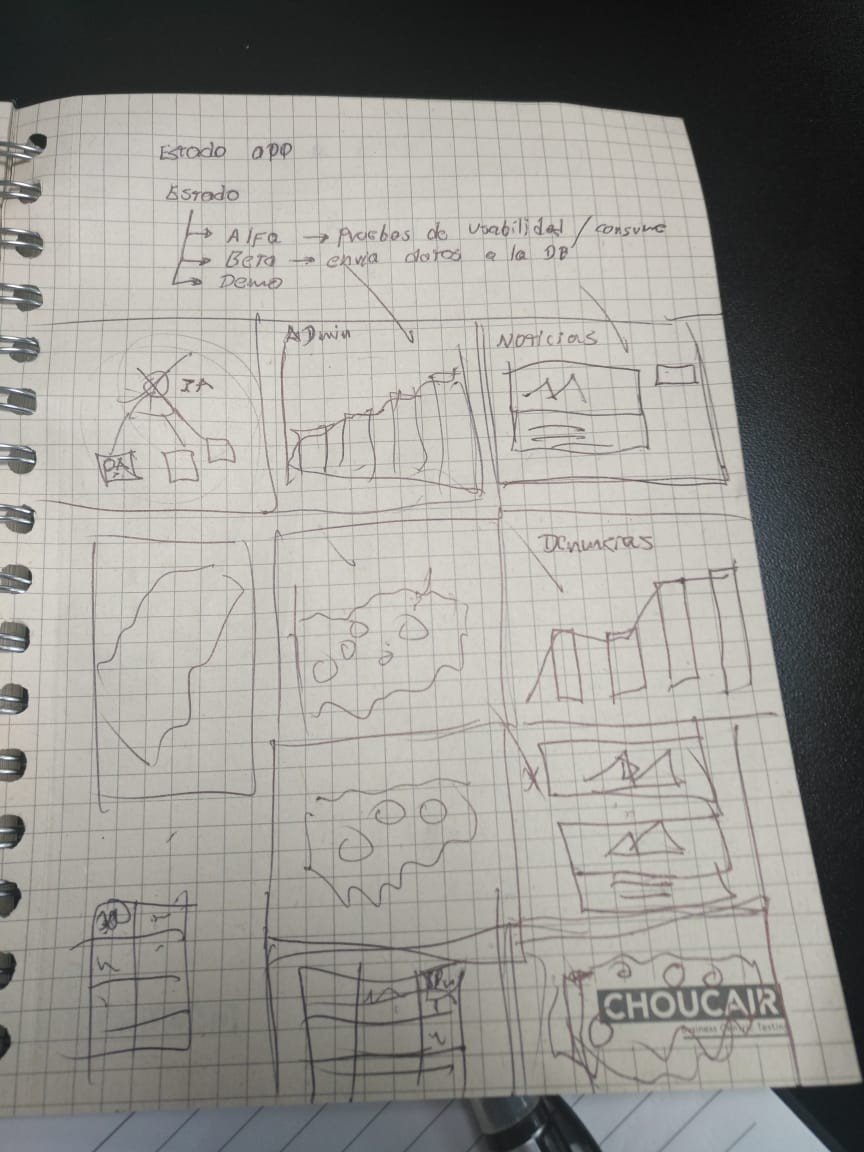 Estado app
Estado
Alfa → Pruebas de usabilidad / consumo
Beta → envia datos a la DB
Demo
IA
ADmin
Noticias
Denuncias
CHOUCAIR
Business Centric Testing